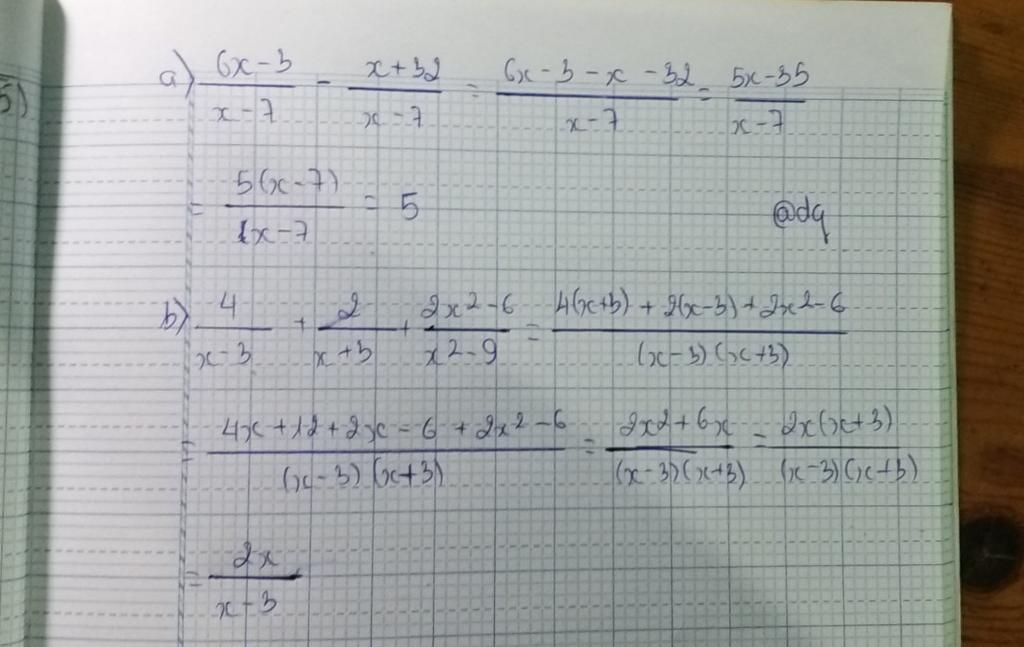 5)
a) (6x-3)/(x-7) - (x+32)/(x-7) = (6x-3-x-32)/(x-7) = (5x-35)/(x-7)
= 5(x-7)/(x-7) = 5
@dq
b) 4/(x-3) + 2/(x+3) + (2x2-6)/(x2-9) = (4(x+3) + 2(x-3) + 2x2-6)/((x-3)(x+3))
= (4x+12+2x-6+2x2-6)/((x-3)(x+3)) = (2x2+6x)/((x-3)(x+3)) = 2x(x+3)/((x-3)(x+3))
= 2x/(x-3)